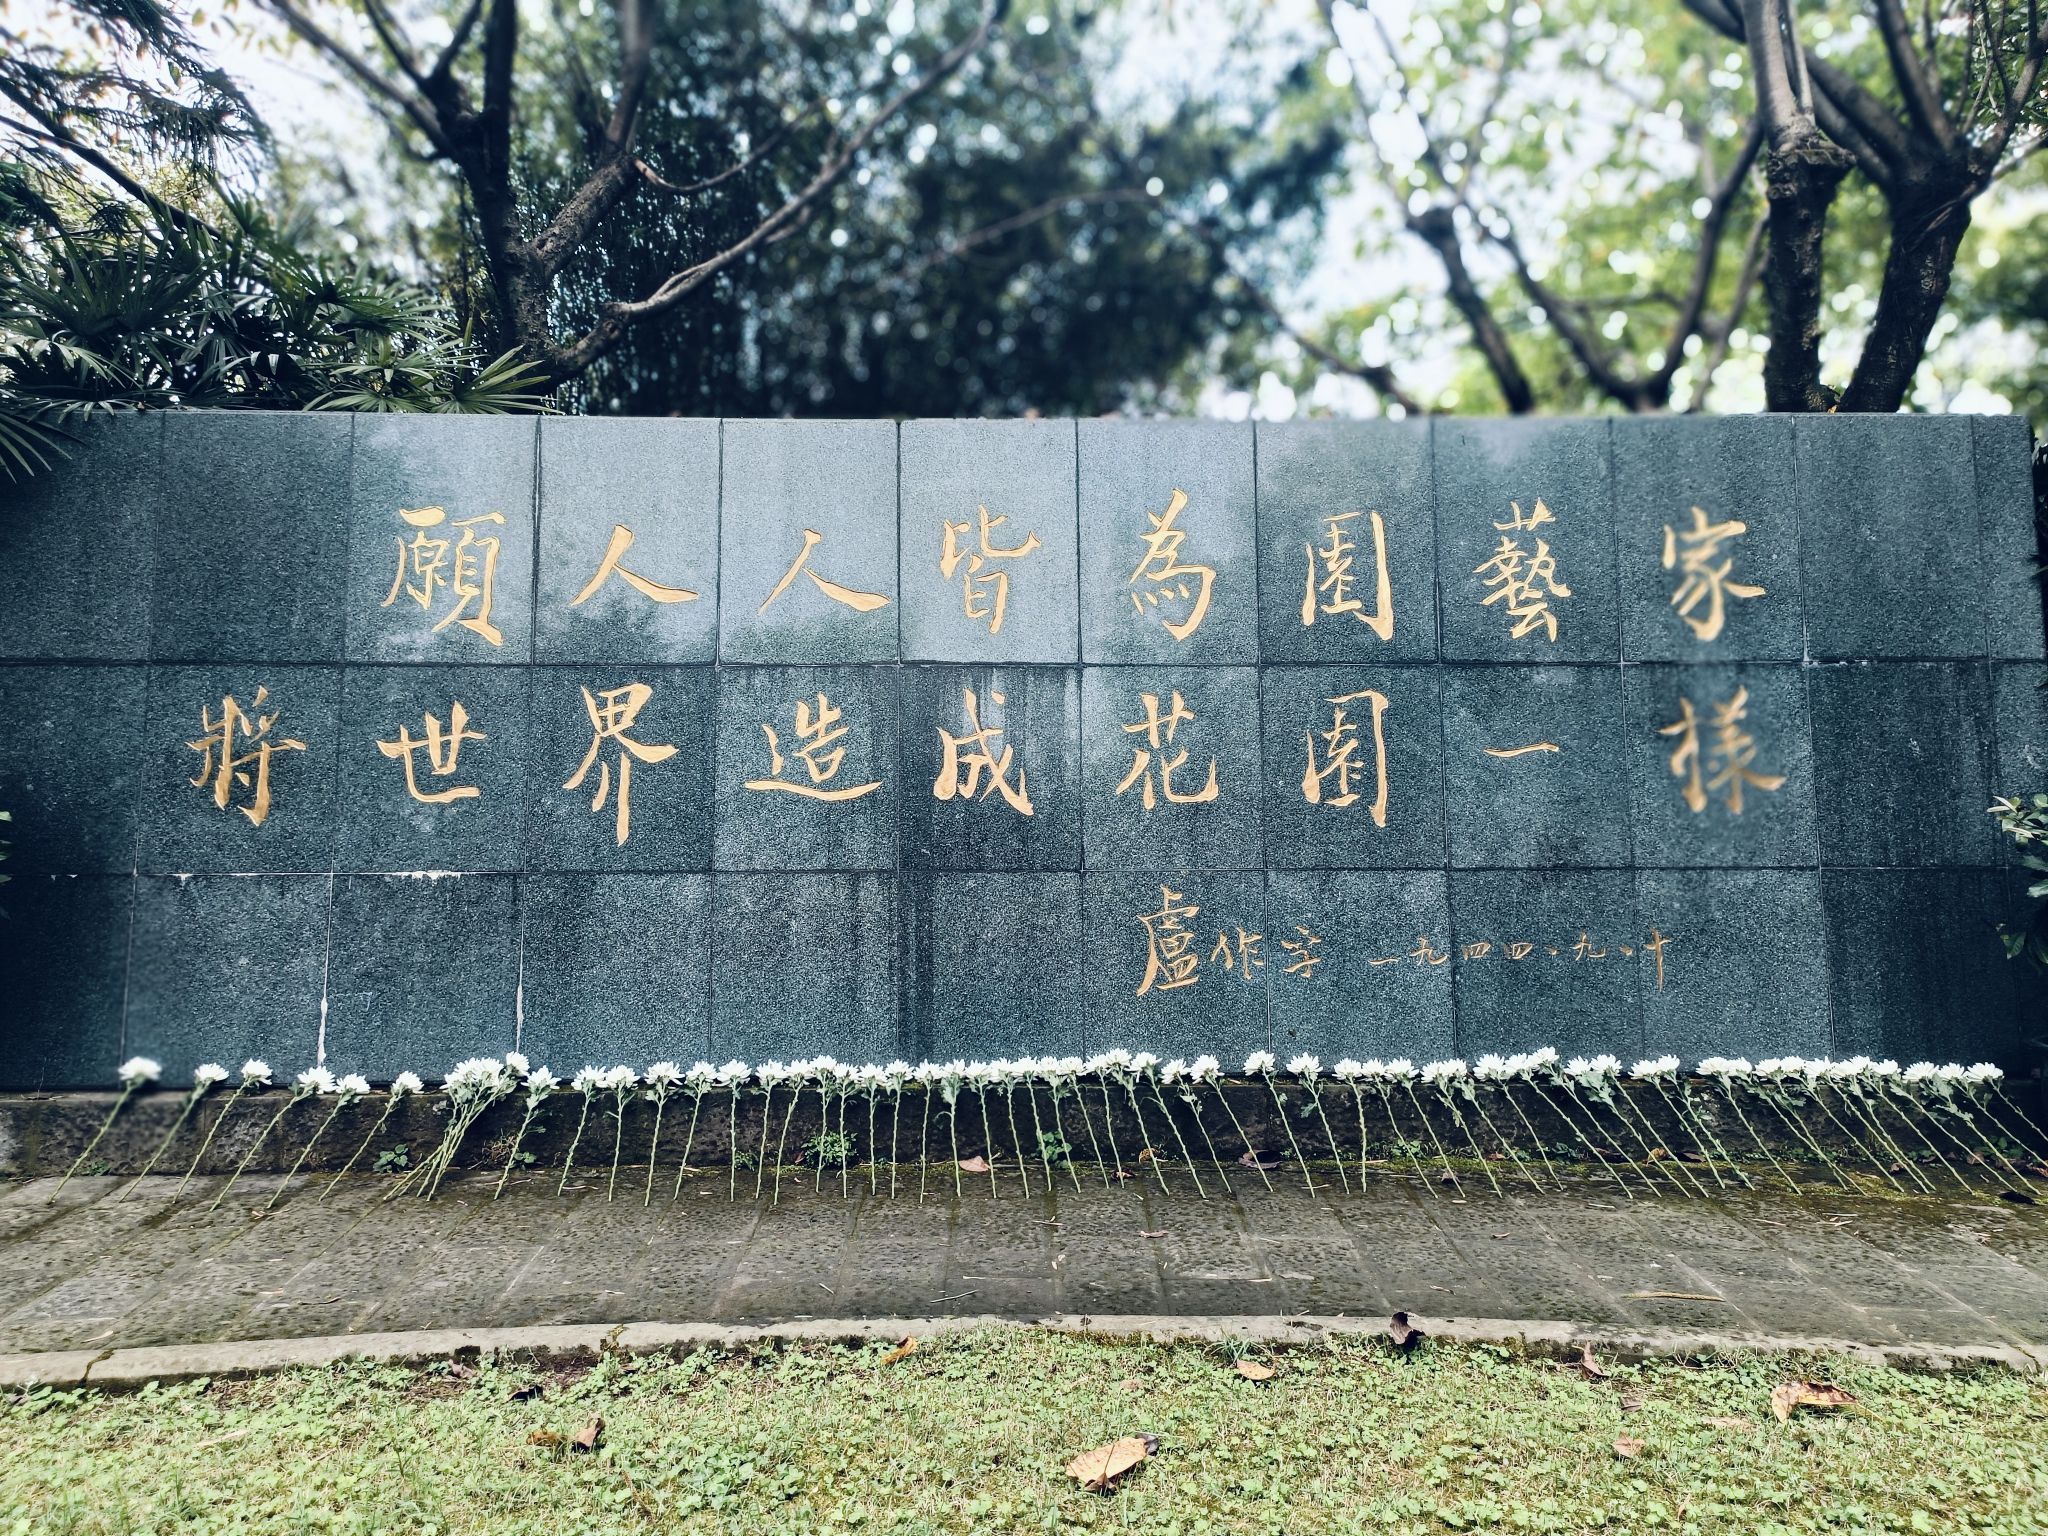 願人人皆為園藝家
將世界造成花園一樣
盧作孚 一九四四·九·十